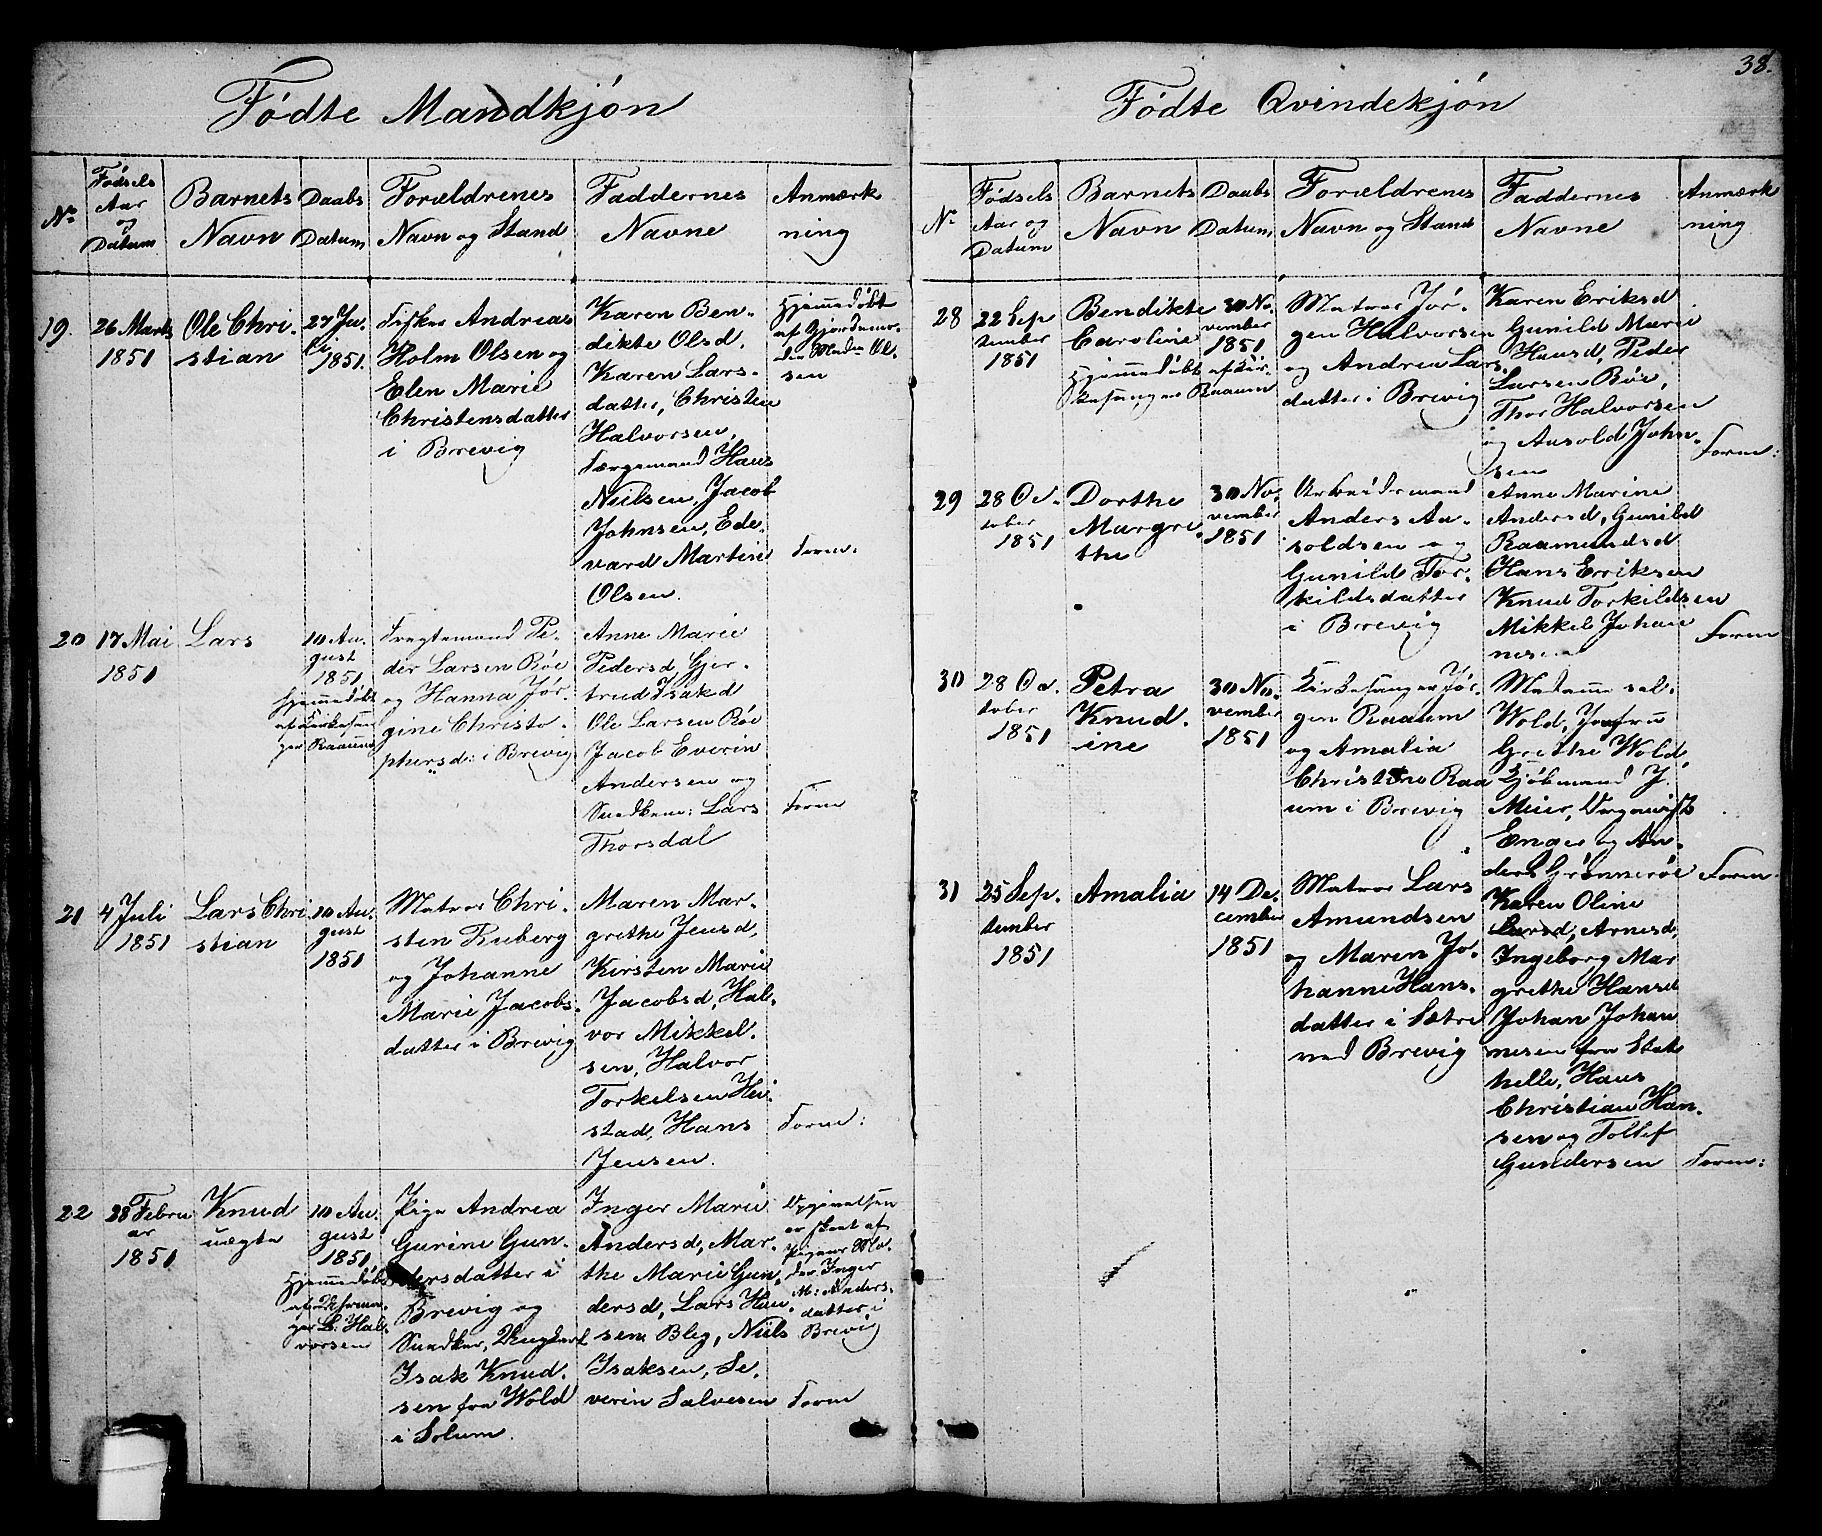 38.
Fødte Mandkjøn
No
Fødsels Aar og Datum
Barnets Navn
Daabs Datum
Forældrenes Navn og Stand
Faddernes Navne
Anmærkning
19.
26 Marts
1851
Ole Chri-
stian
27 Ju-
li
1851.
Fisker Andreas
Holm Olsen og
Elen Marie
Christensdatter
i Brevig
Karen Ben-
dikte Olsd.
Karen Lars-
datter, Christen
Halvorsen,
Færgemand Hans
Nielsen, Jacob
Johnsen, Ede-
vard Martin
Olsen.
Hjemmedøbt
af Gjordemo-
Ol-
sen
Form:
20
17 Mai
1851
Lars
10 Au-
gust
1851
Hjemmedøbt
af Kirkesan-
ger Raaum
Fragtemand Pe-
der Larsen Röe
og Hanna Jør-
gine Christo-
phersd: i Brevig
Anne Marie
Pedersd, Gjer-
trud Isakd
Ole Larsen Röe
Jacob Everin
Andersen og
Lars
Thorsdal
Form
21
4 Juli
1851
Lars Chri
stian
10 Au-
gust
1851
Matros Chri-
sten Ruberg
og Johanne
Marie Jacobs-
datter i Brevig
Maren Mar-
grethe Jensd,
Kirsten Marie
Jacobsd, Hal-
vor Mikkel-
sen, Halvor
Torkelsen Hei-
stad, Hans
Jensen.
Form:
22
28 Febru
ar
1851
Knud
uægte
10 Au-
gust
1851,
Hjemmedøbt
af
ger L: Hal-
vorsen
Pige Andrea
Gurine Gun-
dersdatter i
Brevig og
Ungkarl
Isak Knud-
sen fra Wold
i Solum.
Inger Marie
Andersd, Mar-
the Marie Gun-
dersd, Lars Han-
sen Bleg, Niels
Isaksen, Se-
verin Salvesen
Opgivelsen
er skeet af
Pigens Mo-
der Inger
M: Anders-
datter i
Brevig
Form
Fødte Qvindekjøn
No
Fødsels Aar og Datum
Barnets Navn
Daabs Datum
Forældrenes Navn og Stand
Faddernes Navne
Anmærkning
28
22 Sep
tember
1851
Bendikte
Caroline
Hjemmedøbt af Kir-
kesanger Raaum
30 No-
vember
1851
Matros Jör-
gen Halvorsen
og Andrea Lars-
datter i Brevig
Karen Eriksd
Gunild Marie
Hansd, Peder
Larsen Röe,
Thor Halvorsen
og Aasold John-
sen
Form:
29
28 Oc-
tober
1851
Dorthe
Margre-
the
30 No-
vember
1851
Arbeidsmand
Anders Aa-
soldsen og
Gunild Tor-
kildsdatter
i Brevig
Anne Marine
Andersd, Gunild
Raamundsd
Hans Eriksen
Knud Torkildsen
Mikkel Johan
nesen
Form
30
28 Oc-
tober
1851
Petra
Knud-
ine
30 No-
vember
1851
Kirkesanger Jør-
gen Raaum
og Amalia
Christine Raa
um i Brevig
Madame sal-
Wold, Jomfru
Grethe Wold,
Kjöbmand J.
Meier, Organist
Enger og An-
ders Grönneröe
Form.
31
25 Sep-
tember
1851
Amalia
14 De-
cember
1851
Matros Lars
Amundsen
og Maren Jo-
hanne Hans-
datter i Sætre
ved Brevig
Karen Oline
Larsd, Arnesd,
Ingeborg Mar
grethe Hansd
Johan Johan
nesen fra Stat
helle, Hans
Christian Han-
sen og Tollef
Gundersen
Form: